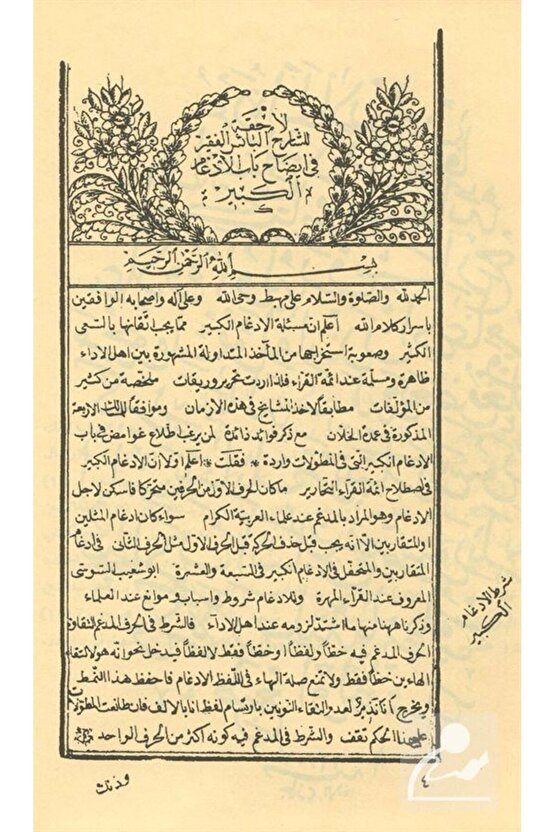 لاحقة
للشارح الناشر الفقير
في ايضاح باب الادغام
الكبير
بسم الله الرحمن الرحيم
الحمد لله والصلوة والسلام على مهبط وحى الله وعلى آله واصحابه الواقفين
باسرار كلام الله اعلم ان مسئلة الادغام الكبير مما يجب تقانها بالسعى
الكثير وصعوبة استخراجها من المآخذ المتداولة المشهورة بين اهل الاداء
ظاهرة ومسلمة عند ائمة القراء فلذا اردت تحرير وريقات ملخصة من كثير
من المؤلفات مطابقا لاخذ المشايخ فى هذه الازمان وموافقا الاربعة
المذكورة فى عمدة الخلان مع ذكر فوائد زائدة لمن يرغب اطلاع غوامض فى باب
الادغام الكبير التى فى المطولات واردة فقلت اعلم اولا ان الادغام الكبير
فى اصطلاح ائمة القراء النحارير ماكان الحرف الاول من الحرفين متحركا فاسكن لاجل
الادغام وهو المراد بالمدغم عند علماء العربية الكرام سواء كان ادغام المثلين
او المتقاربين الا انه يجب قبل حذف الحركة قبل الحرف الاول مثل الحرف الثانى فى ادغام
المتقاربين والمتحفل فى الادغام الكبير فى السبعة والعشرة ابو شعيب السوسى
المعروف عند القراء المهرة وللادغام شروط واسباب وموانع عند العلماء
وذكرنا ههنا منها ما اشتد لزومه عند اهل الاداء فالشرط فى الحرف المدغم التقاؤه
الحرف المدغم فيه خطا ولفظا او خطا فقط لا لفظا فيدخل نحو انه هو لالتقاء
الهاءين خطا فقط ولا تمنع صلة الهاء فى اللفظ الادغام فاحفظ هذا النمط
ويخرج انا نذير لعدم التقاء النونين بارتسام لفظ انا بالالف فان طالعت المطولات
على هذا الحكم تقف والشرط فى المدغم فيه كونه اكثر من الحرف الواحد
شرط الادغام
الكبير
٤